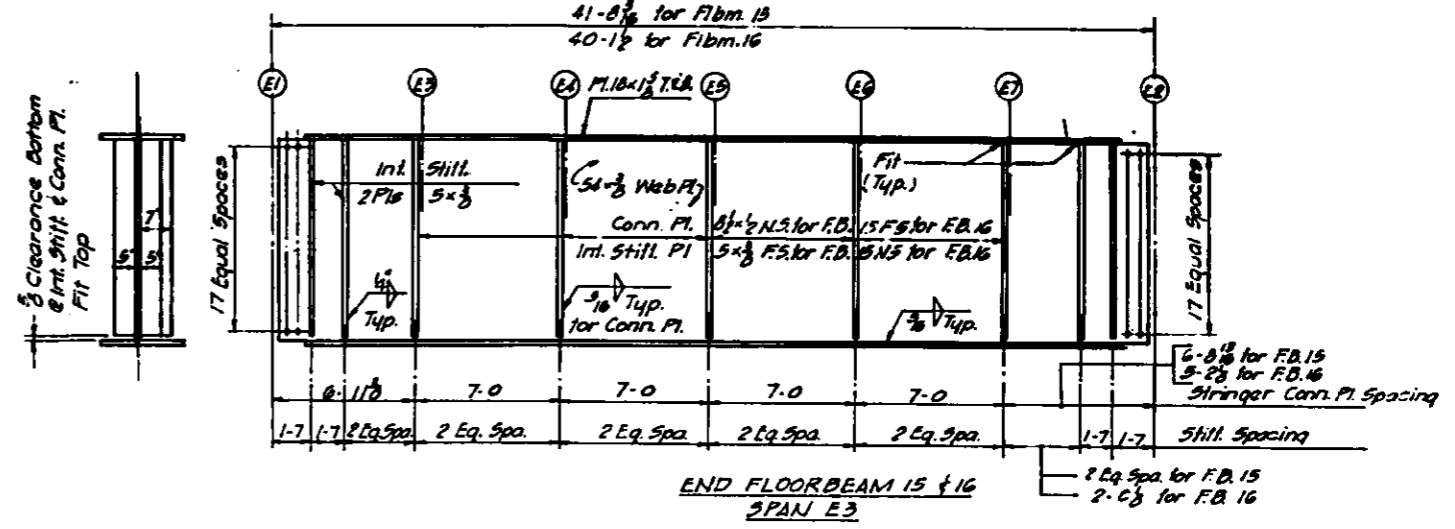 41-8 3/16 for Flbm. 15
40-1 1/2 for Flbm. 16
E1
E3
E4
E5
E6
E7
E2
Pl. 18 x 1 5/8 T. & B.
5/8 Clearance Bottom
@ Int. Stiff. & Conn. Pl.
Fit Top
7"
5" 5"
17 Equal Spaces
Int. Stiff.
2 Pls 5 x 3/8
54 x 3/8 Web Pl.
Fit
(Typ.)
Conn. Pl. 8 1/2 x 1/2 N.S. for F.B. 15 F.S. for F.B. 16
Int. Stiff. Pl 5 x 3/8 F.S. for F.B. 15 N.S. for F.B. 16
17 Equal Spaces
1/4
Typ.
5/16 Typ.
for Conn. Pl.
5/16 Typ.
for F.B. 15
for F.B. 16
Stringer Conn. Pl. Spacing
7-0 7-0 7-0 7-0
1-7 1-7 2 Eq. Spa. 2 Eq. Spa. 2 Eq. Spa. 2 Eq. Spa. 2 Eq. Spa. 1-7 1-7 Stiff. Spacing
2 Eq. Spa. for F.B. 15
for F.B. 16
END FLOORBEAM 15 & 16
SPAN E3